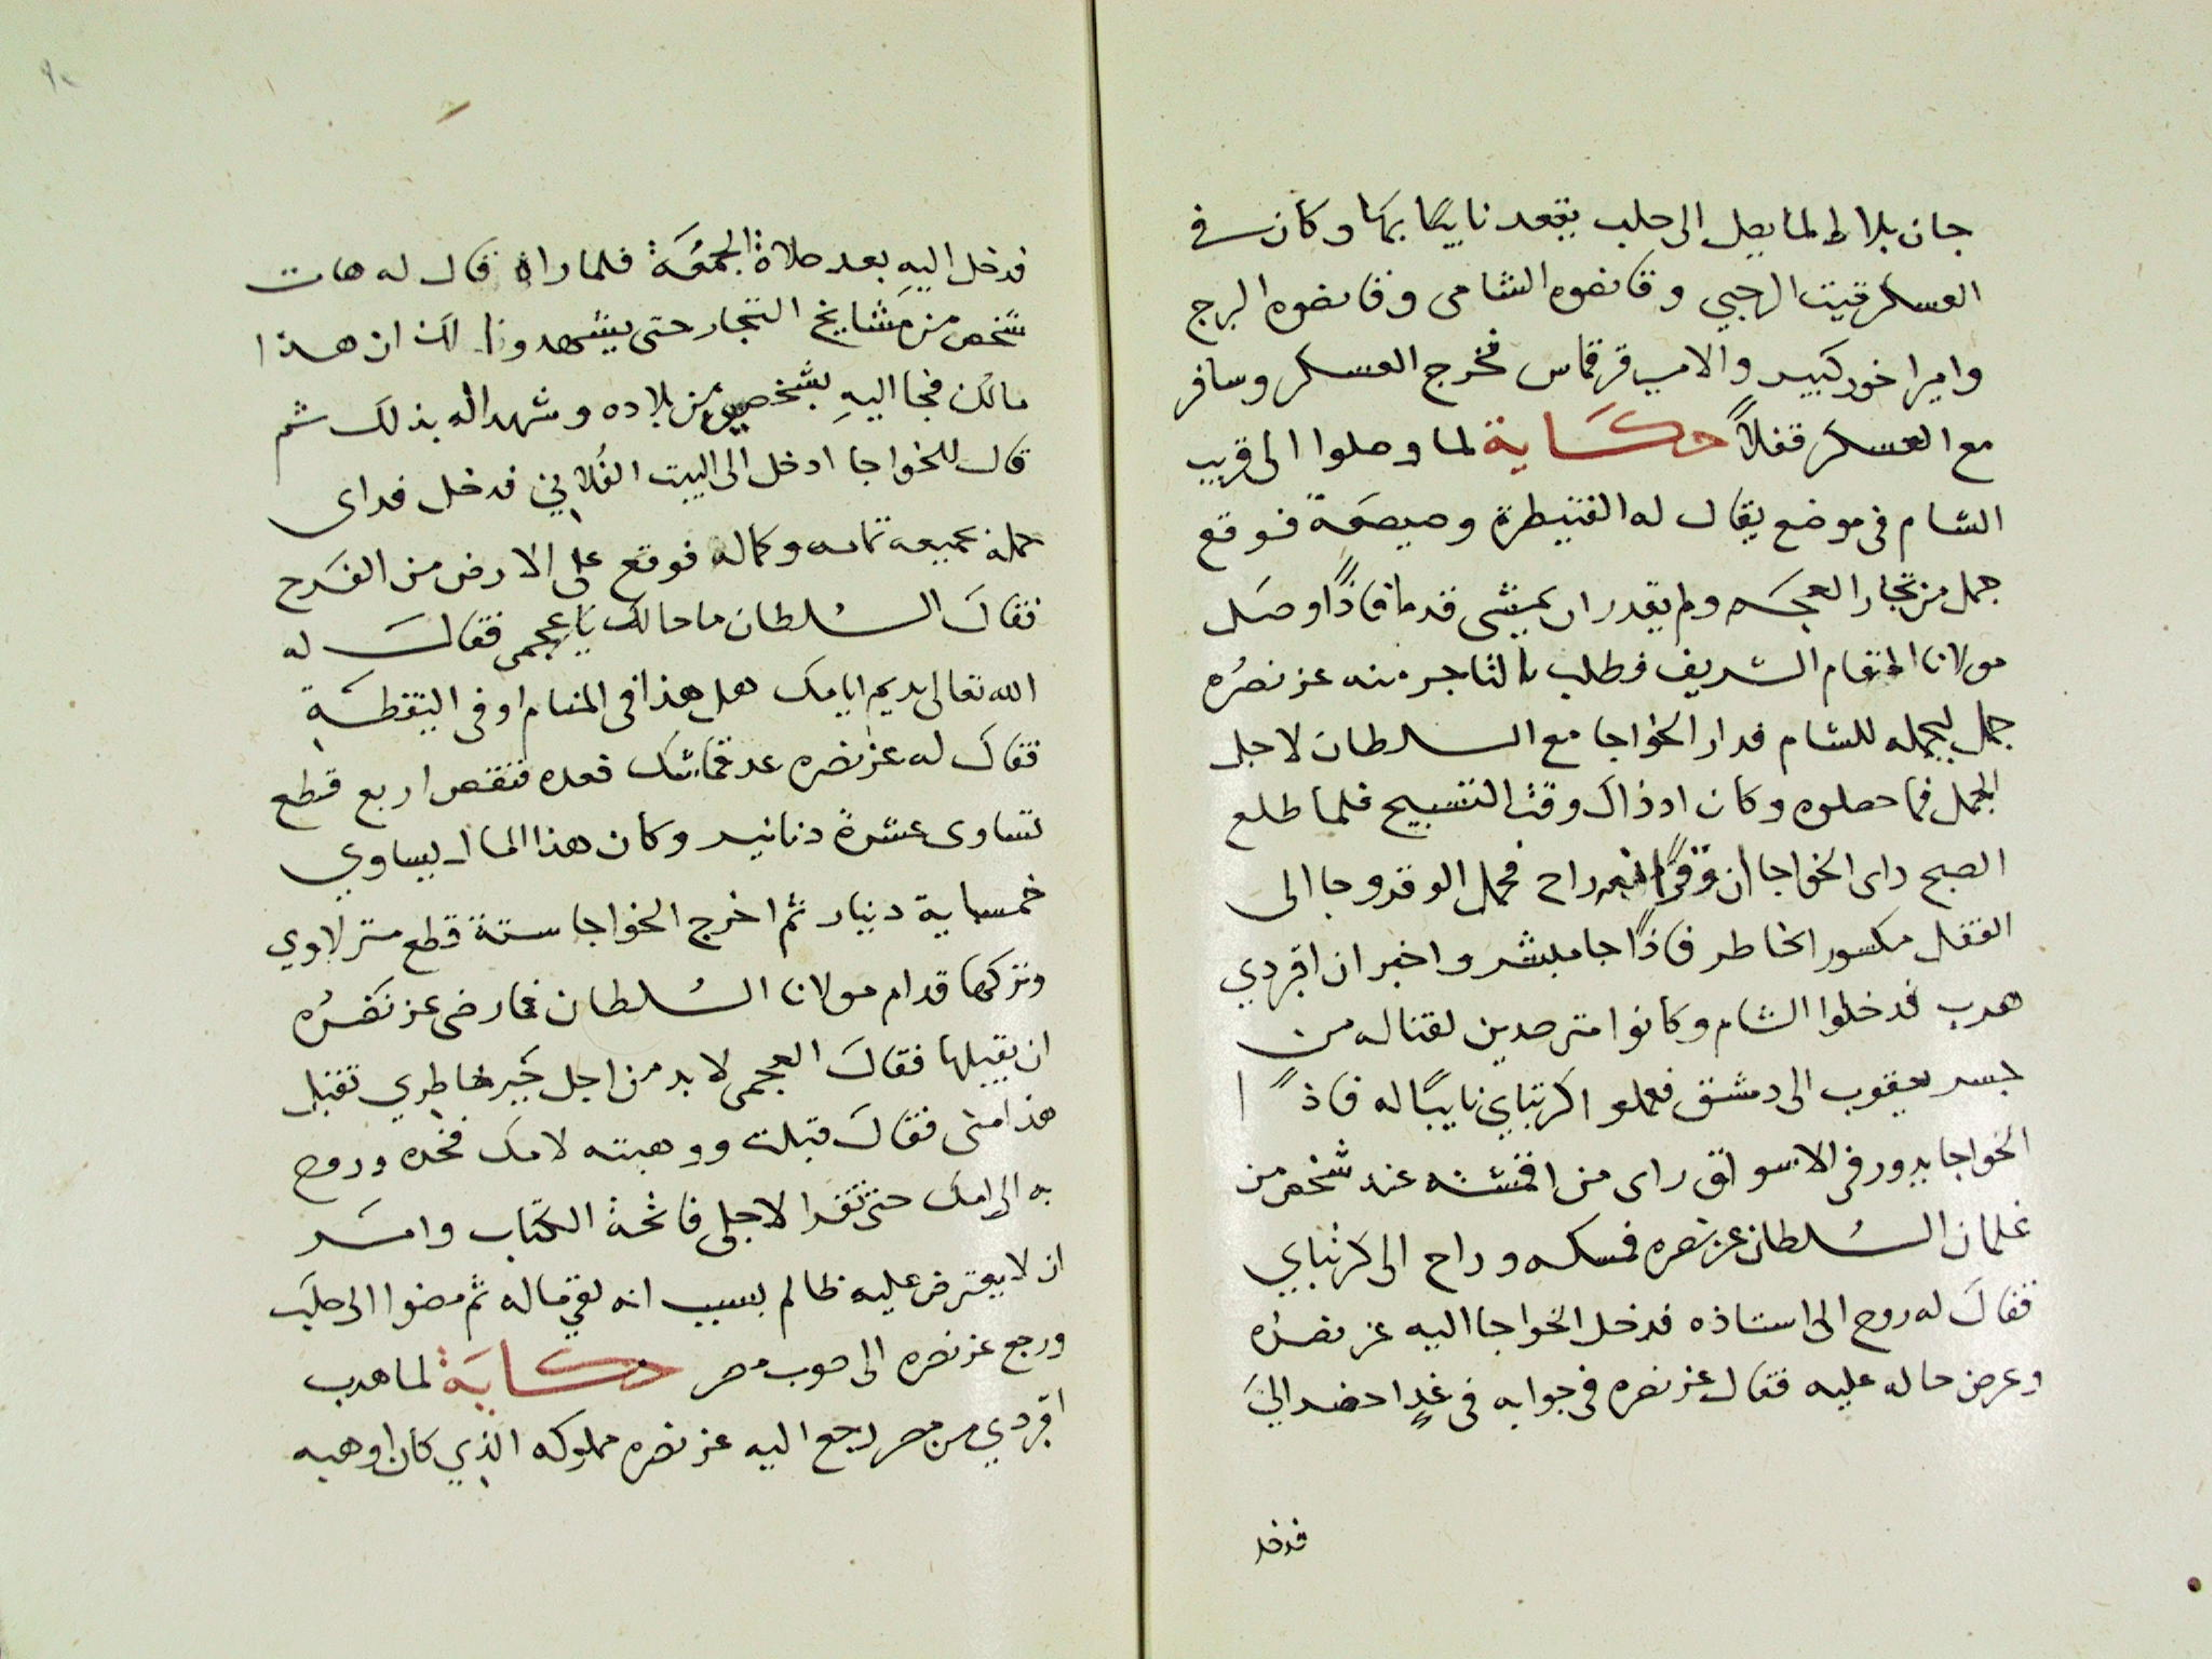 جان بلاط لما يصل الى حلب يقعد نايبًا بها وكان في
العسكر قيت الرجبي وقانصوه الشامى وقانصوه البرج
وامير اخور كبير والامير قرقماس فخرج العسكر وسافر
مع العسكر قفلاً حكاية لما وصلوا الى قريب
الشام فى موضع يقال له القنيطرة وصيصعة فوقع
جمل من تجار العجم ولم يقدر ان يمشى قدما فاذًا وصل
مولانا المقام الشريف فطلب التاجر منه عز نصرُه
جمل ليحمله للشام فدار الخواجا مع السلطان لاجل
الجمل فما حصلوه وكان اذ ذاك وقت التسبيح فلما طلع
الصبح راى الخواجا ان وقرًا راح فحمل الوقر وجا الى
القفل مكسور الخاطر فاذًا جا مبشر واخبر ان اقبردي
هرب فدخلوا الشام وكانوا مترصدين لقتاله من
جسر يعقوب الى دمشق فعملوا كرتباي نايبًا له فاذًا
الخواجا يدور فى الاسواق راى من اقمشته عند شخص من
غلمان السُلطان عز نصره فمسكه وراح الى كرتباي
فقال له روح الى استاذه فدخل الخواجا اليه عز نصره
وعرض حاله عليه فقال عز نصره فى جوابه فى غدٍ احضر اليَّ
فدخل
فدخل اليهِ بعد صلاة الجمُعَة فلما راه قال له هات
شخص من مَشايخ التجار حتى يشهدوا لك ان هذا
مالك فجا اليهِ بشخصين من بلاده وشهدا له بذلك ثم
قال للخواجا ادخل الى البيت الفُلاني فدخل فراى
حمله بجميعه تمامه وكماله فوقع على الارض من الفَرح
فقالَ السُلطان ما حالك يا عجمى فقالَ له
الله تعالى يديم ايامك هل هذا فى المنام او فى اليقظَة
فقالَ له عز نصره عد قماشك فعده فنقص اربع قطع
تساوى عشرة دنانير وكان هذا المال يساوي
خمسماية دينار ثم اخرج الخواجا ستة قطع منزلاوي
وتركها قدام مولانا السُلطان فما رضى عز نَصْرُه
ان يقبلها فقالَ العجمى لا بد من اجل جَبر خاطري تقبل
هذا منى فقالَ قبلت ووهبته لامك فخده وروح
به الى امك حتى تقرا لاجلى فاتحة الكتاب وامَر
ان لا يعترض عليه ظالم بسبب انه لقى ماله ثم مضوا الى حلَب
ورجع عز نصره الى صوب مصر حكايَة لما هرب
اقبردي من مصر رجع اليه عز نصره مملوكه الذي كان اوهبه